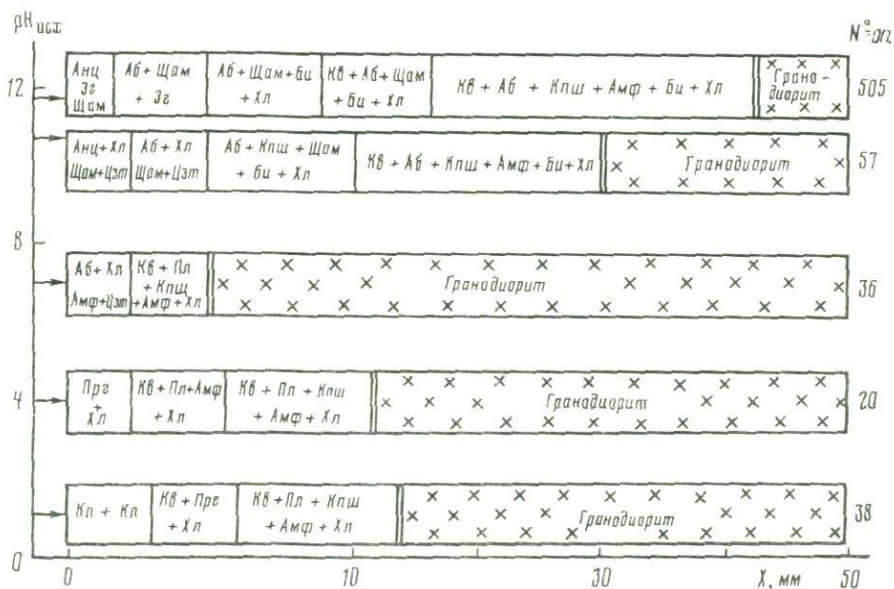 pH исх
N° оп.
12
Анц
Эг
Щам
Аб + Щам
+ Эг
Аб + Щам + Би
+ Хл
Кв + Аб + Щам
+ Би + Хл
Кв + Аб + Кпш + Амф + Би + Хл
Грано-
диорит
505
Анц + Хл
Щам + Цэт
Аб + Хл
Щам + Цэт
Аб + Кпш + Щам
+ Би + Хл
Кв + Аб + Кпш + Амф + Би + Хл
Гранодиорит
57
8
Аб + Хл
Амф + Цэт
Кв + Пл
+ Кпщ
+ Амф + Хл
Гранодиорит
36
4
Прг
+
Хл
Кв + Пл + Амф
+ Хл
Кв + Пл + Кпш
+ Амф + Хл
Гранодиорит
20
Кл + Кл
Кв + Прг
+ Хл
Кв + Пл + Кпш
+ Амф + Хл
Гранодиорит
38
0
0
10
30
X, мм
50